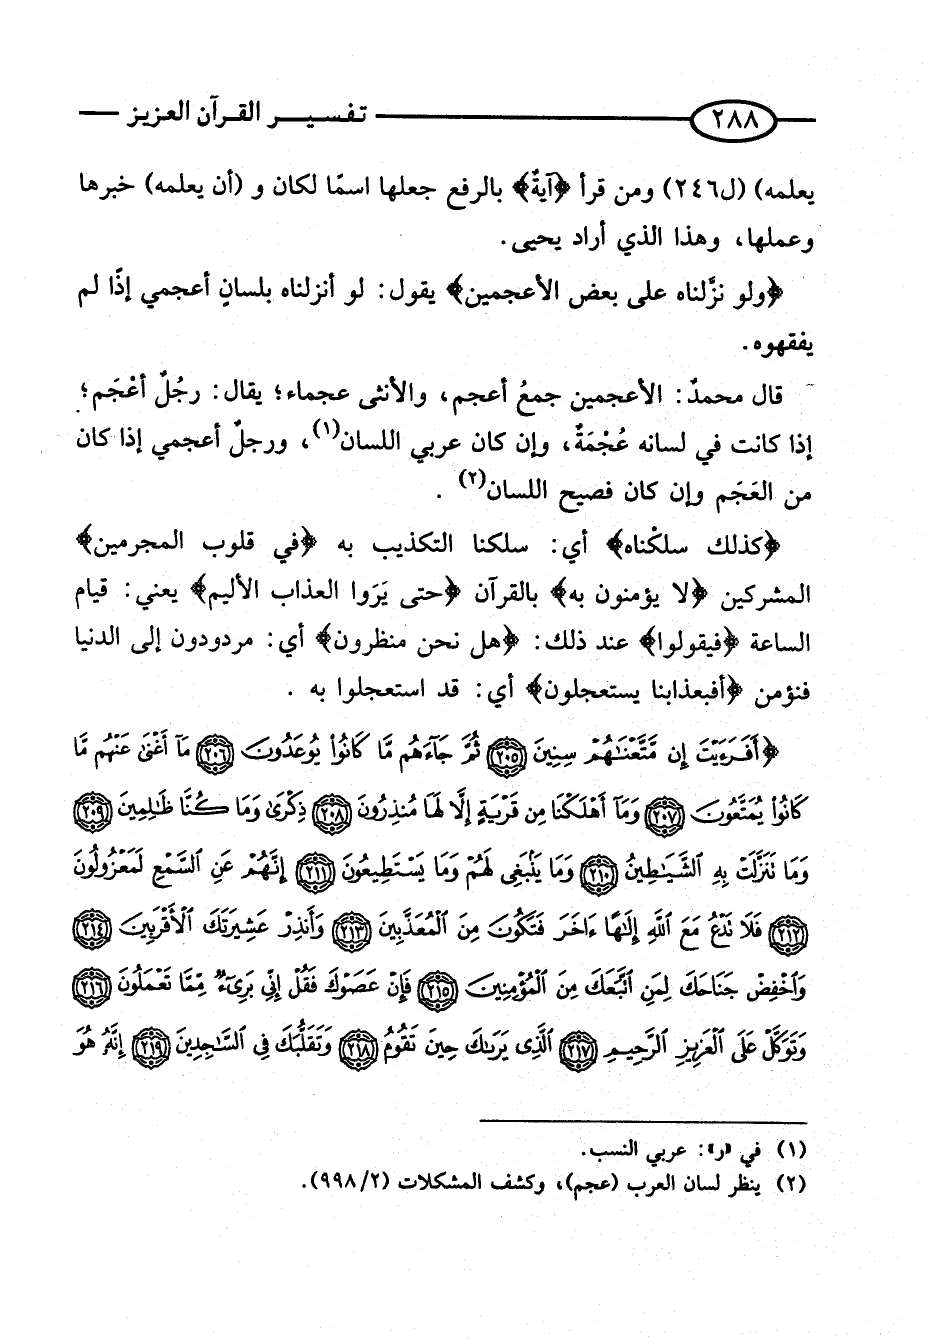 ٢٨٨ تفسير القرآن العزيز
يعلمه) (ل٢٤٦) ومن قرأ ﴿آيةٌ﴾ بالرفع جعلها اسمًا لكان و (أن يعلمه) خبرها
وعملها، وهذا الذي أراد يحيى.
﴿ولو نزَّلناه على بعض الأعجمين﴾ يقول: لو أنزلناه بلسانٍ أعجمي إذًا لم
يفقهوه.
قال محمدٌ: الأعجمين جمعُ أعجم، والأنثى عجماء؛ يقال: رجُلٌ أعْجَم؛
إذا كانت في لسانه عُجْمَةٌ، وإن كان عربي اللسان(١)، ورجلٌ أعجمي إذا كان
من العَجَم وإن كان فصيح اللسان(٢) .
﴿كذلك سلكْناه﴾ أي: سلكنا التكذيب به ﴿في قلوب المجرمين﴾
المشركين ﴿لا يؤمنون به﴾ بالقرآن ﴿حتى يَرَوا العذاب الأليم﴾ يعني: قيام
الساعة ﴿فيقولوا﴾ عند ذلك: ﴿هل نحن منظرون﴾ أي: مردودون إلى الدنيا
فنؤمن ﴿أفبعذابنا يستعجلون﴾ أي: قد استعجلوا به .
﴿أَفَرَءَيْتَ إِن مَّتَّعْنَٰهُمْ سِنِينَ ٢٠٥ ثُمَّ جَآءَهُم مَّا كَانُوا۟ يُوعَدُونَ ٢٠٦ مَآ أَغْنَىٰ عَنْهُم مَّا
كَانُوا۟ يُمَتَّعُونَ ٢٠٧ وَمَآ أَهْلَكْنَا مِن قَرْيَةٍ إِلَّا لَهَا مُنذِرُونَ ٢٠٨ ذِكْرَىٰ وَمَا كُنَّا ظَٰلِمِينَ ٢٠٩
وَمَا نَنَزَّلَتْ بِهِ الشَّيَٰطِينُ ٢١٠ وَمَا يَنۢبَغِى لَهُمْ وَمَا يَسْتَطِيعُونَ ٢١١ إِنَّهُمْ عَنِ السَّمْعِ لَمَعْزُولُونَ
٢١٢ فَلَا نَدْعُ مَعَ اللَّهِ إِلَٰهًا ءَاخَرَ فَتَكُونَ مِنَ الْمُعَذَّبِينَ ٢١٣ وَأَنذِرْ عَشِيرَتَكَ الْأَقْرَبِينَ ٢١٤
وَاخْفِضْ جَنَاحَكَ لِمَنِ اتَّبَعَكَ مِنَ الْمُؤْمِنِينَ ٢١٥ فَإِنْ عَصَوْكَ فَقُلْ إِنِّي بَرِىٓءٌ مِّمَّا تَعْمَلُونَ ٢١٦
وَتَوَكَّلْ عَلَى الْعَزِيزِ الرَّحِيمِ ٢١٧ الَّذِى يَرَىٰكَ حِينَ تَقُومُ ٢١٨ وَتَقَلُّبَكَ فِى السَّٰجِدِينَ ٢١٩ إِنَّهُۥ هُوَ
(١) في «ر»: عربي النسب.
(٢) ينظر لسان العرب (عجم)، وكشف المشكلات (٩٩٨/٢).